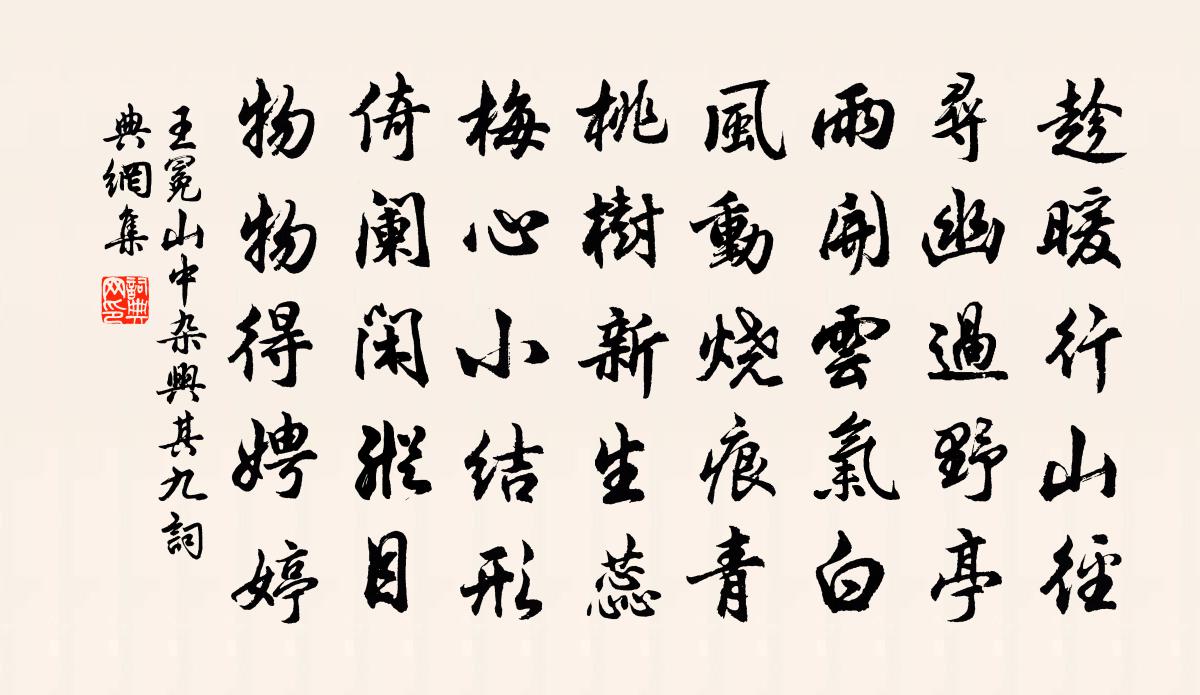 趁暖行山徑
尋幽過野亭
雨開雲氣白
風動燒痕青
桃樹新生蕊
梅心小结形
倚闌閑縱目
物物得娉婷
王冕山中杂興其九詞
典網集
詞典
网印